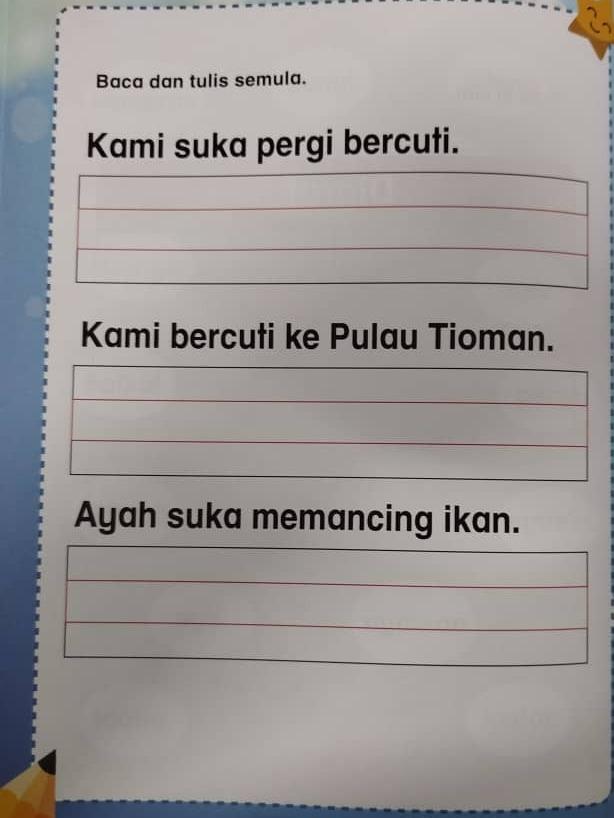 Baca dan tulis semula.
Kami suka pergi bercuti.
Kami bercuti ke Pulau Tioman.
Ayah suka memancing ikan.